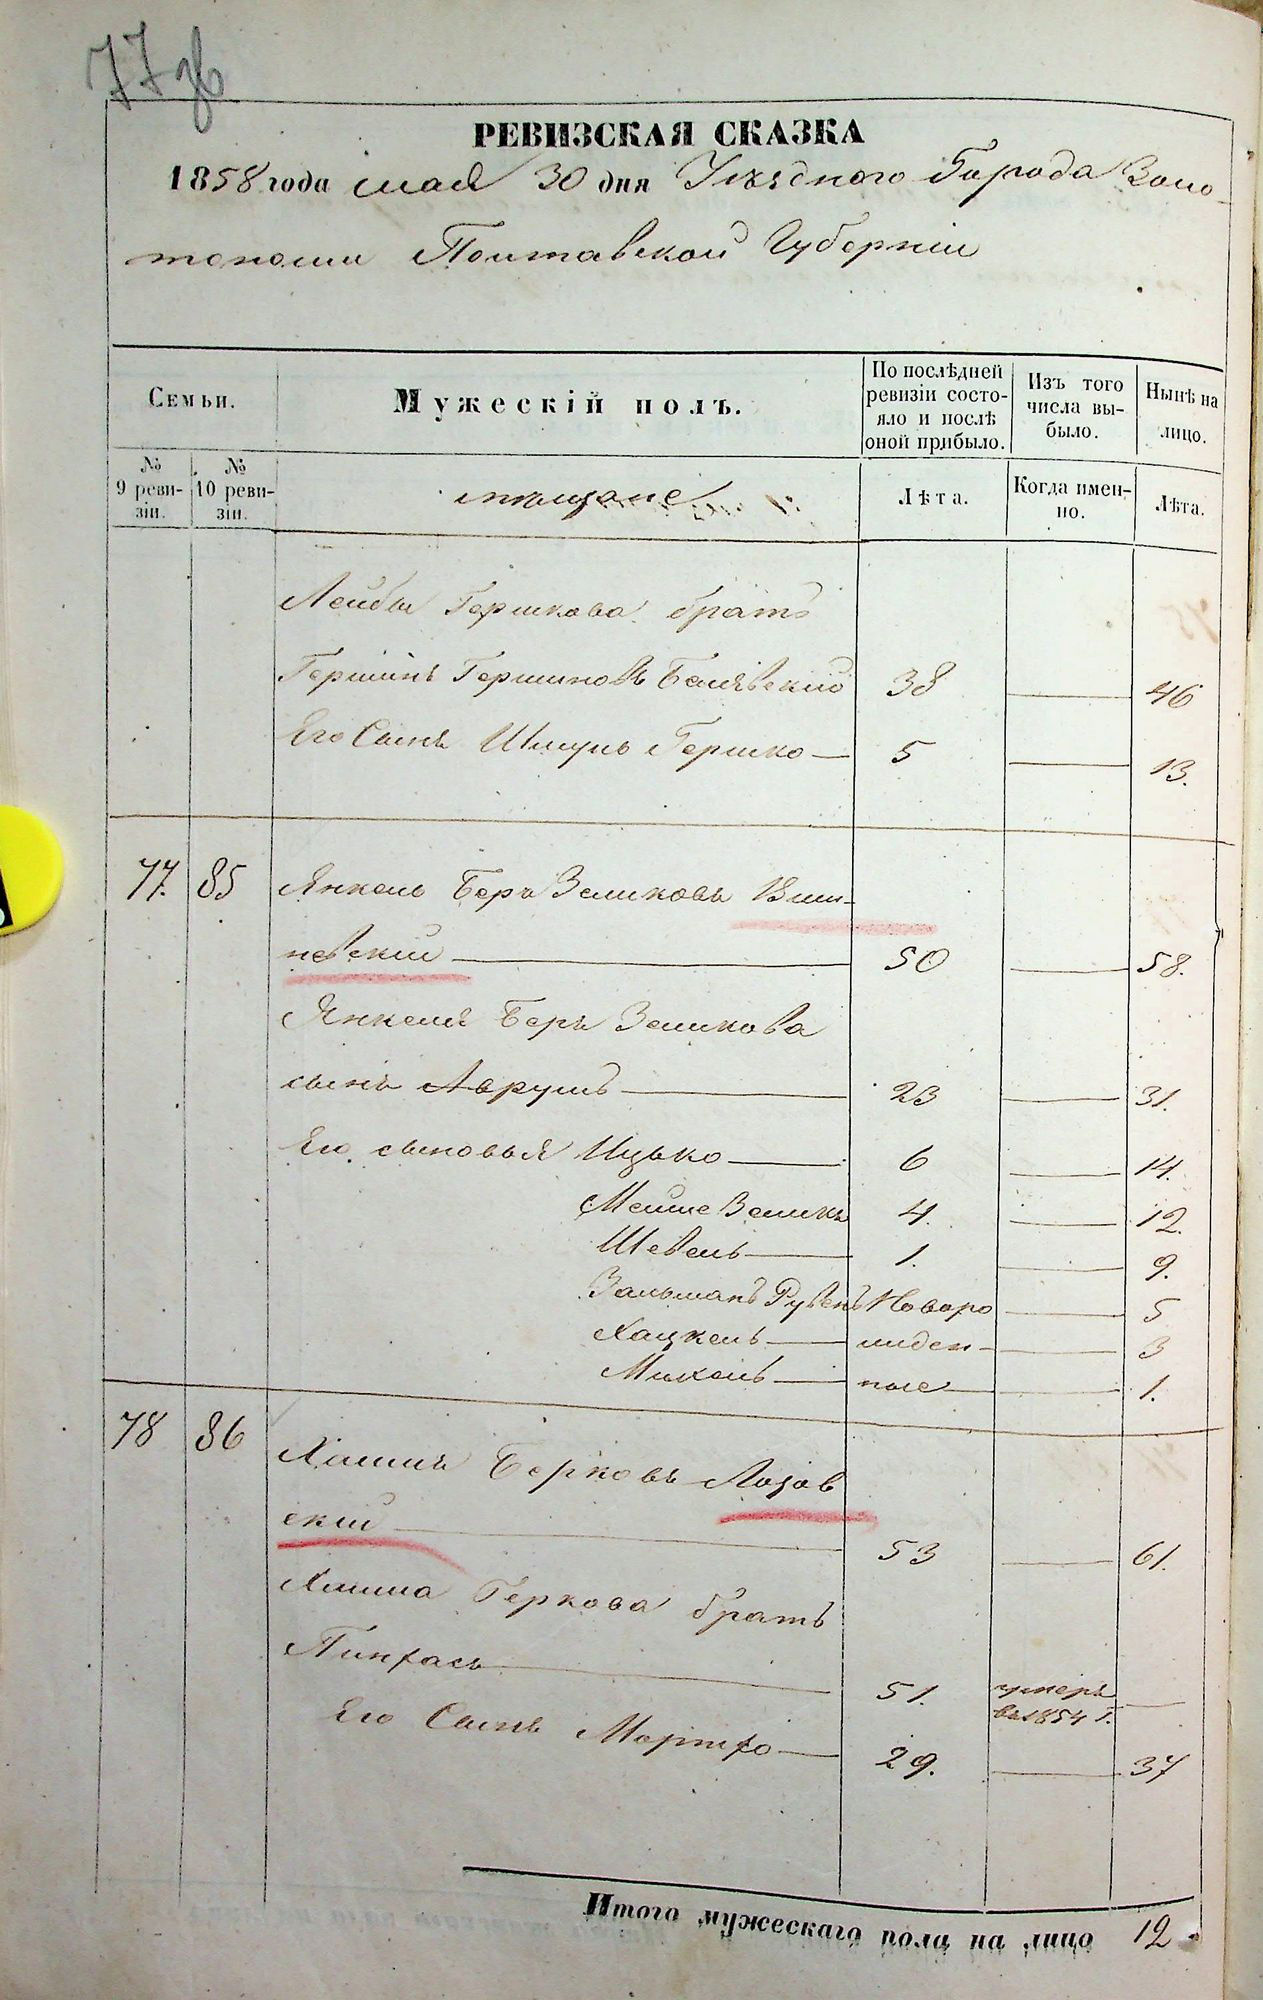 77 зв
РЕВИЗСКАЯ СКАЗКА
1858 года мая 30 дня Уѣзднаго Города Золо
тоноши Полтавской Губерніи
Семьи.
Мужескій полъ.
По послѣдней ревизіи состояло и послѣ оной прибыло.
Изъ того числа выбыло.
Нынѣ на лицо.
№ 9 ревизіи.
№ 10 ревизіи.
мѣщане
Лѣта.
Когда именно.
Лѣта.
Лейбы Гершкова братъ
Гершинъ Гершиковъ Беляевский 38 — 46
Его Сынъ Шмуль Гершко — 5 — 13.
77. 85 Янкель Беръ Зеликовъ Виш-
невский — 50 — 58.
Янкеля Беръ Зеликова
сынъ Аврумъ — 23 — 31.
Его сыновья Ицько — 6 — 14.
Мейше Зеликъ 4. — 12.
Шевель — 1. — 9.
Зальманъ Рувенъ Новоро — 5
Хацкель — жден- — 3
Михель — ные — 1.
78 86 Хаимъ Берковъ Лозов
ский — 53 — 61.
Хаима Беркова братъ
Пинхасъ — 51. умеръ въ 1854 г. —
Его Сынъ Мортхо — 29. — 37
Итого мужескаго пола на лицо 12